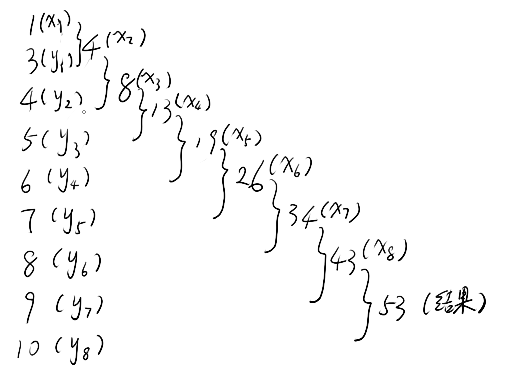 1(x₁)
3(y₁) 4(x₂)
4(y₂) 8(x₃)
5(y₃) 13(x₄)
6(y₄) 19(x₅)
7(y₅) 26(x₆)
8(y₆) 34(x₇)
9(y₇) 43(x₈)
10(y₈) 53(结果)